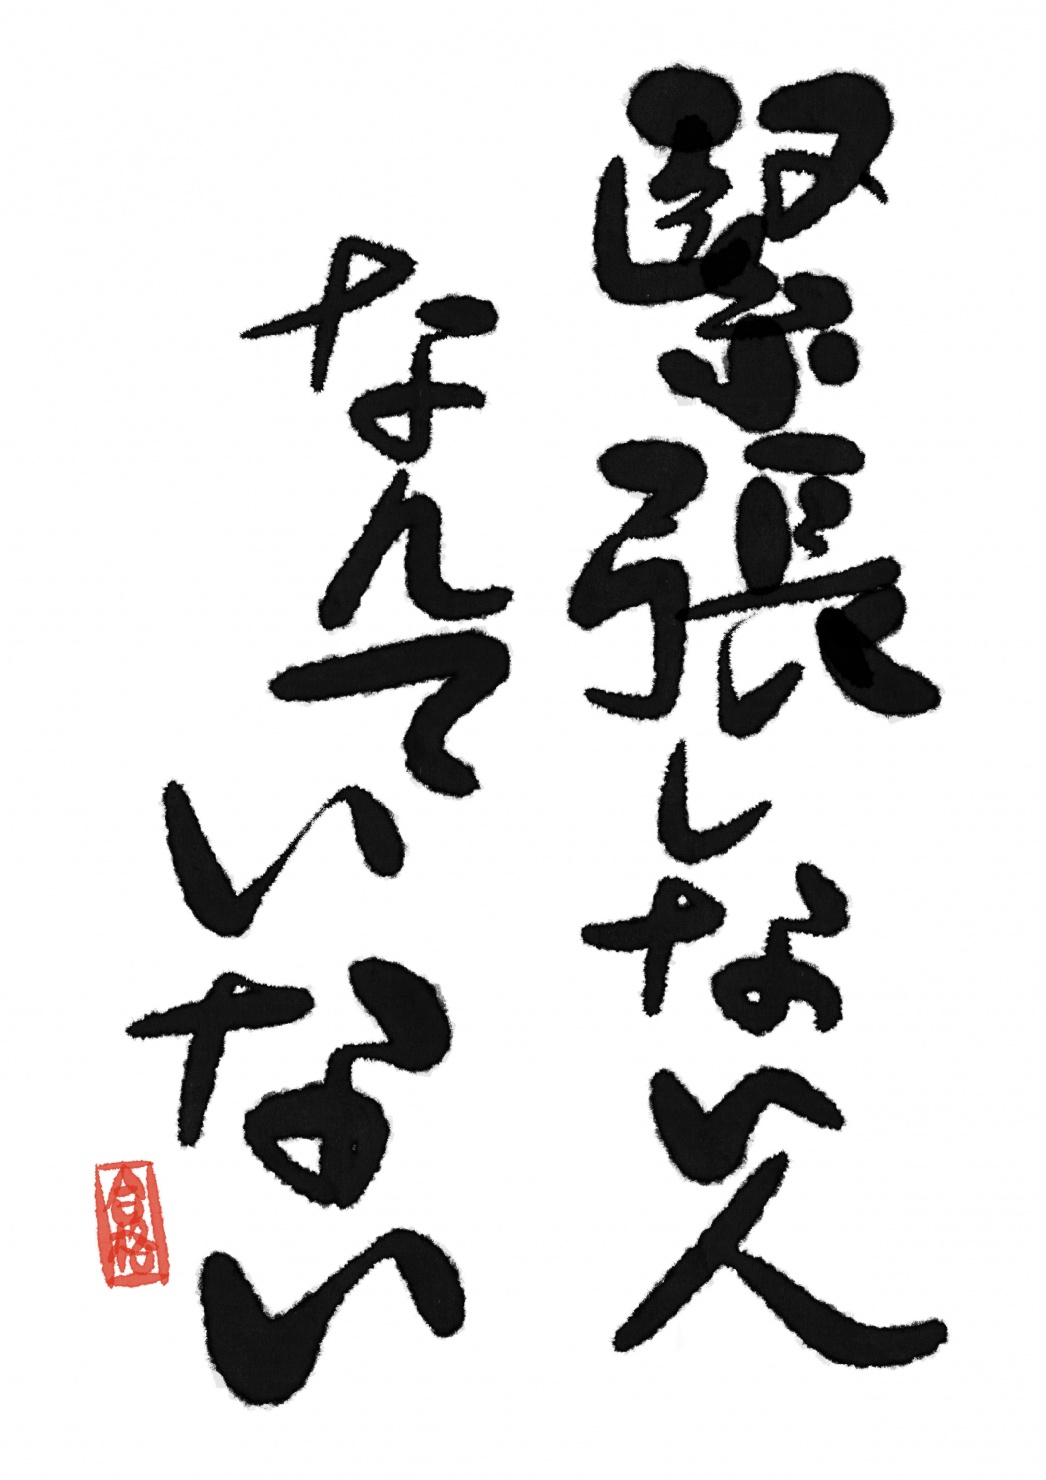 緊張しない人
なんていない
合格